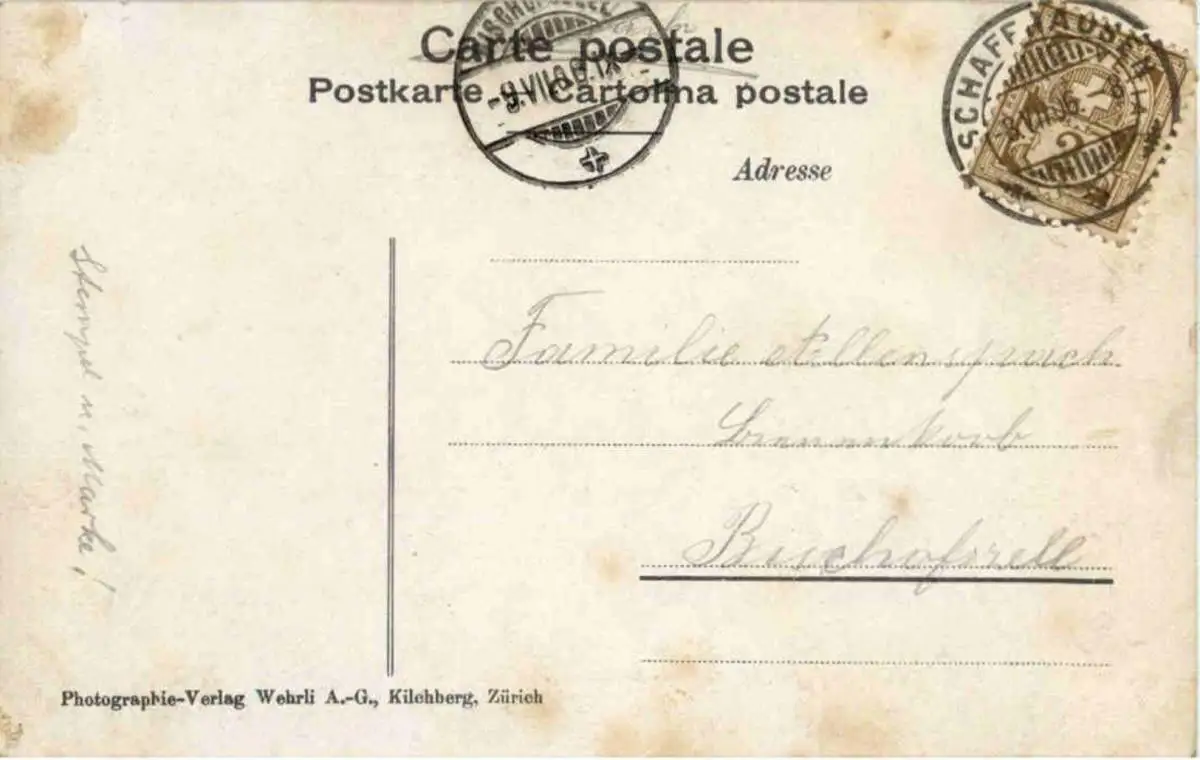 Carte postale
Postkarte — Cartolina postale
BISCHOFSZELL
-9.VII.06.IX
SCHAFFHAUSEN
VII.06.
2
Adresse
Familie
Bienenkorb
Bischofszell
Stempel u. Marke!
Photographie-Verlag Wehrli A.-G., Kilchberg, Zürich